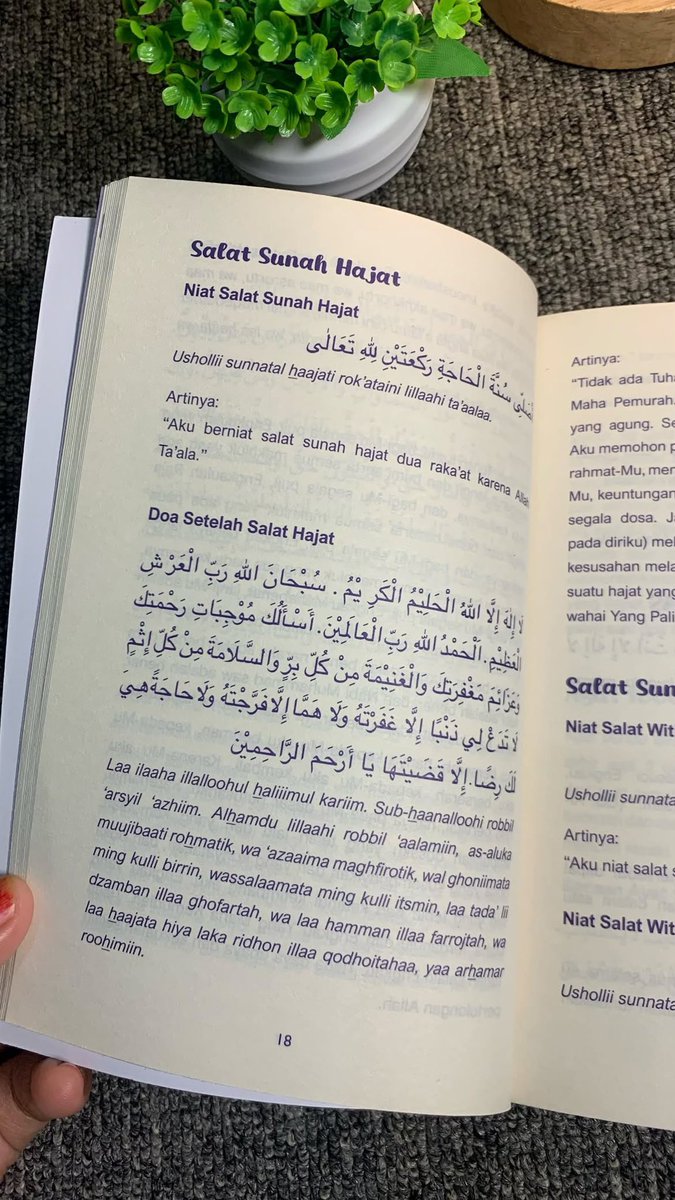 Salat Sunah Hajat
Niat Salat Sunah Hajat
اُصَلِّى سُنَّةَ الْحَاجَةِ رَكْعَتَيْنِ لِلّٰهِ تَعَالٰى
Ushollii sunnatal haajati rok'ataini lillaahi ta'aalaa.
Artinya:
“Aku berniat salat sunah hajat dua raka'at karena Allah
Ta'ala.”
Doa Setelah Salat Hajat
لَا إِلٰهَ إِلَّا اللهُ الْحَلِيْمُ الْكَرِ يْمُ . سُبْحَانَ اللهِ رَبِّ الْعَرْشِ
الْعَظِيْمِ. اَلْحَمْدُ لِلهِ رَبِّ الْعَالَمِيْنَ. أَسْأَلُكَ مُوْجِبَاتِ رَحْمَتِكَ
وَعَزَائِمَ مَغْفِرَتِكَ وَالْغَنِيْمَةَ مِنْ كُلِّ بِرٍّ وَالسَّلَامَةَ مِنْ كُلِّ إِثْمٍ
لَا تَدَعْ لِي ذَنْبًا إِلَّا غَفَرْتَهُ وَلَا هَمًّا إِلَّا فَرَّجْتَهُ وَلَا حَاجَةً هِيَ
لَكَ رِضًا. إِلَّا قَضَيْتَهَا يَا أَرْحَمَ الرَّاحِمِيْنَ
Laa ilaaha illalloohul haliiimul kariim. Sub-haanalloohi robbil
'arsyil 'azhiim. Alhamdu lillaahi robbil 'aalamiin, as-aluka
muujibaati rohmatik, wa 'azaaima maghfirotik, wal ghoniimata
ming kulli birrin, wassalaamata ming kulli itsmin, laa tada' lii
dzamban illaa ghofartah, wa laa hamman illaa farrojtah, wa
laa haajata hiya laka ridhon illaa qodhoitahaa, yaa arhamar
roohimiin.
18
Artinya:
“Tidak ada Tuha
Maha Pemurah.
yang agung. Se
Aku memohon p
rahmat-Mu, mer
Mu, keuntungan
segala dosa. Ja
pada diriku) mel
kesusahan mela
suatu hajat yang
wahai Yang Pali
Salat Sun
Niat Salat Wit
Ushollii sunnata
Artinya:
“Aku niat salat s
Niat Salat Wit
Ushollii sunnata